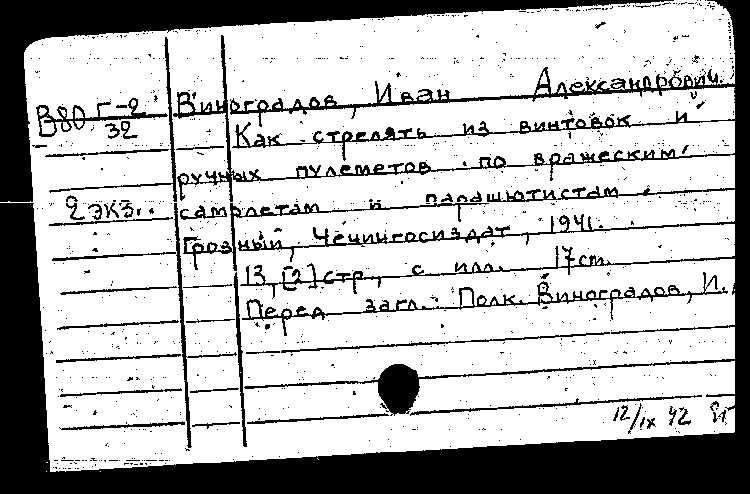 В80 Г-2
32
Виноградов, Иван Александрович.
Как стрелять из винтовок и
ручных пулеметов по вражеским
2 экз. самолетам и парашютистам.
Грозный, Чечингосиздат, 1941.
13, [2] стр., с илл. 17 см.
Перед загл.: Полк. Виноградов, И.
12/IX 42